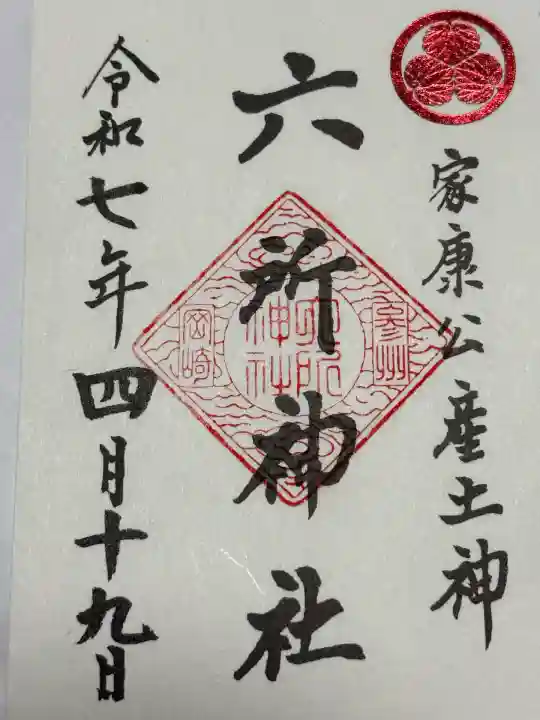 家康公産土神
六所神社
参州
六所神社
岡崎
令和七年四月十九日